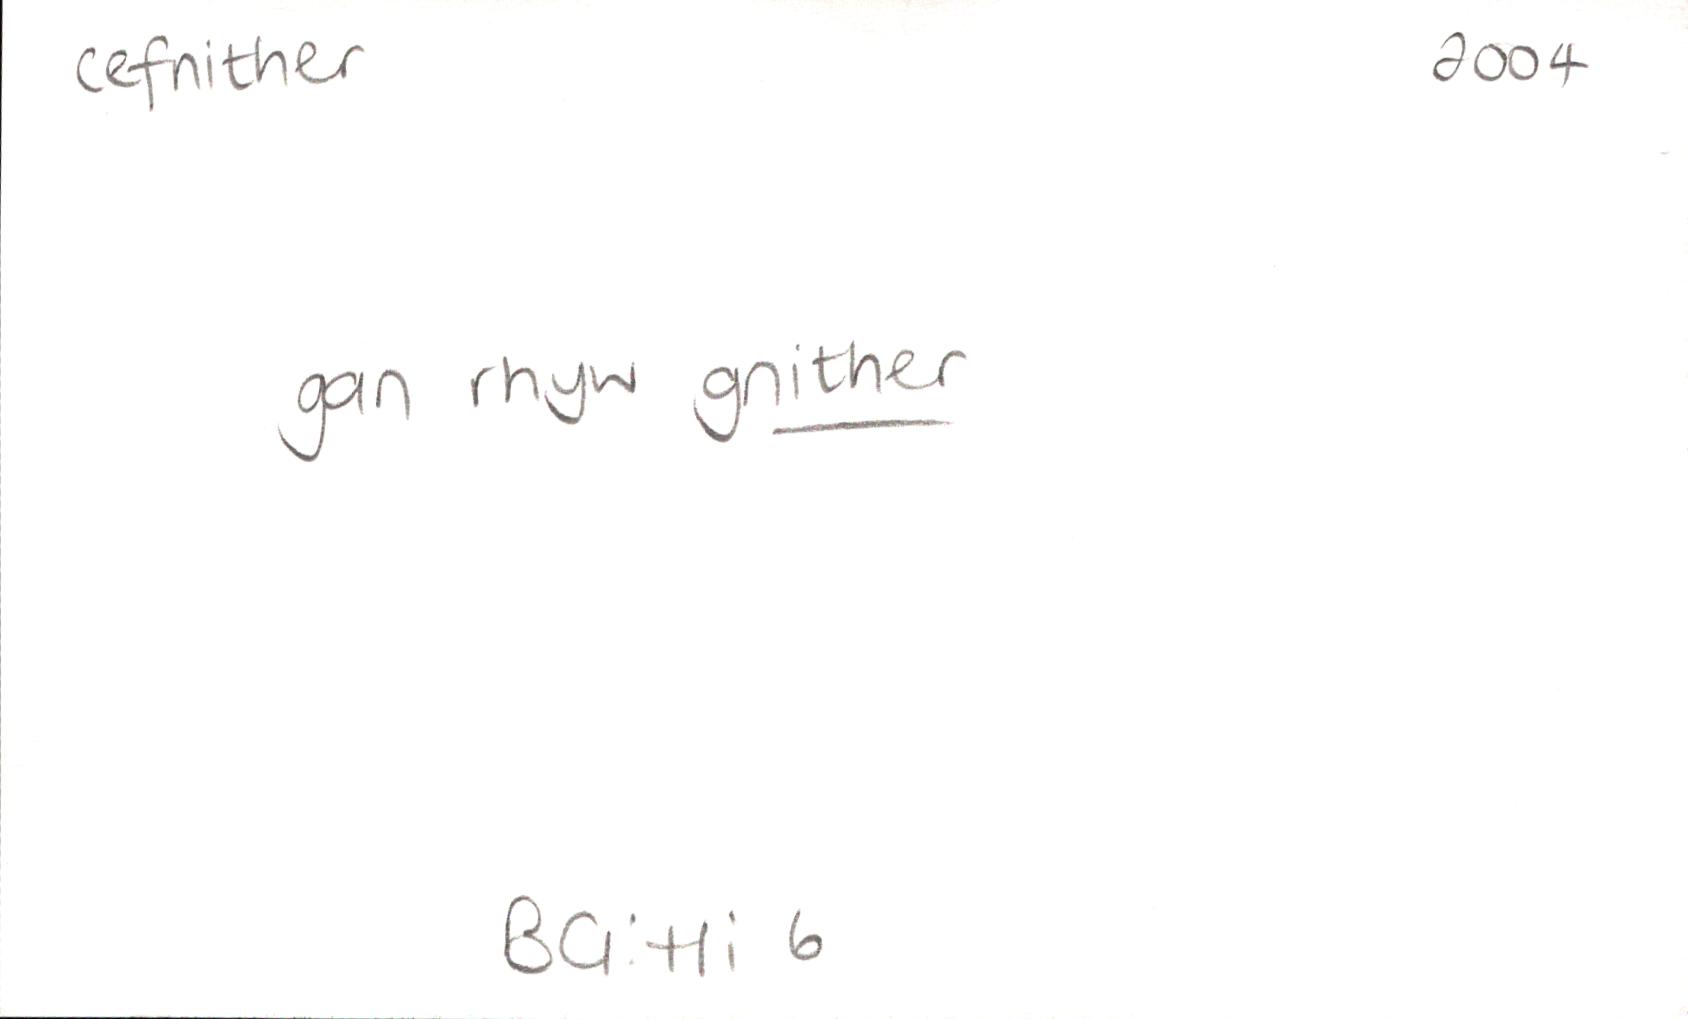 cefnither 2004
gan rhyw gnither
BG:Hi 6